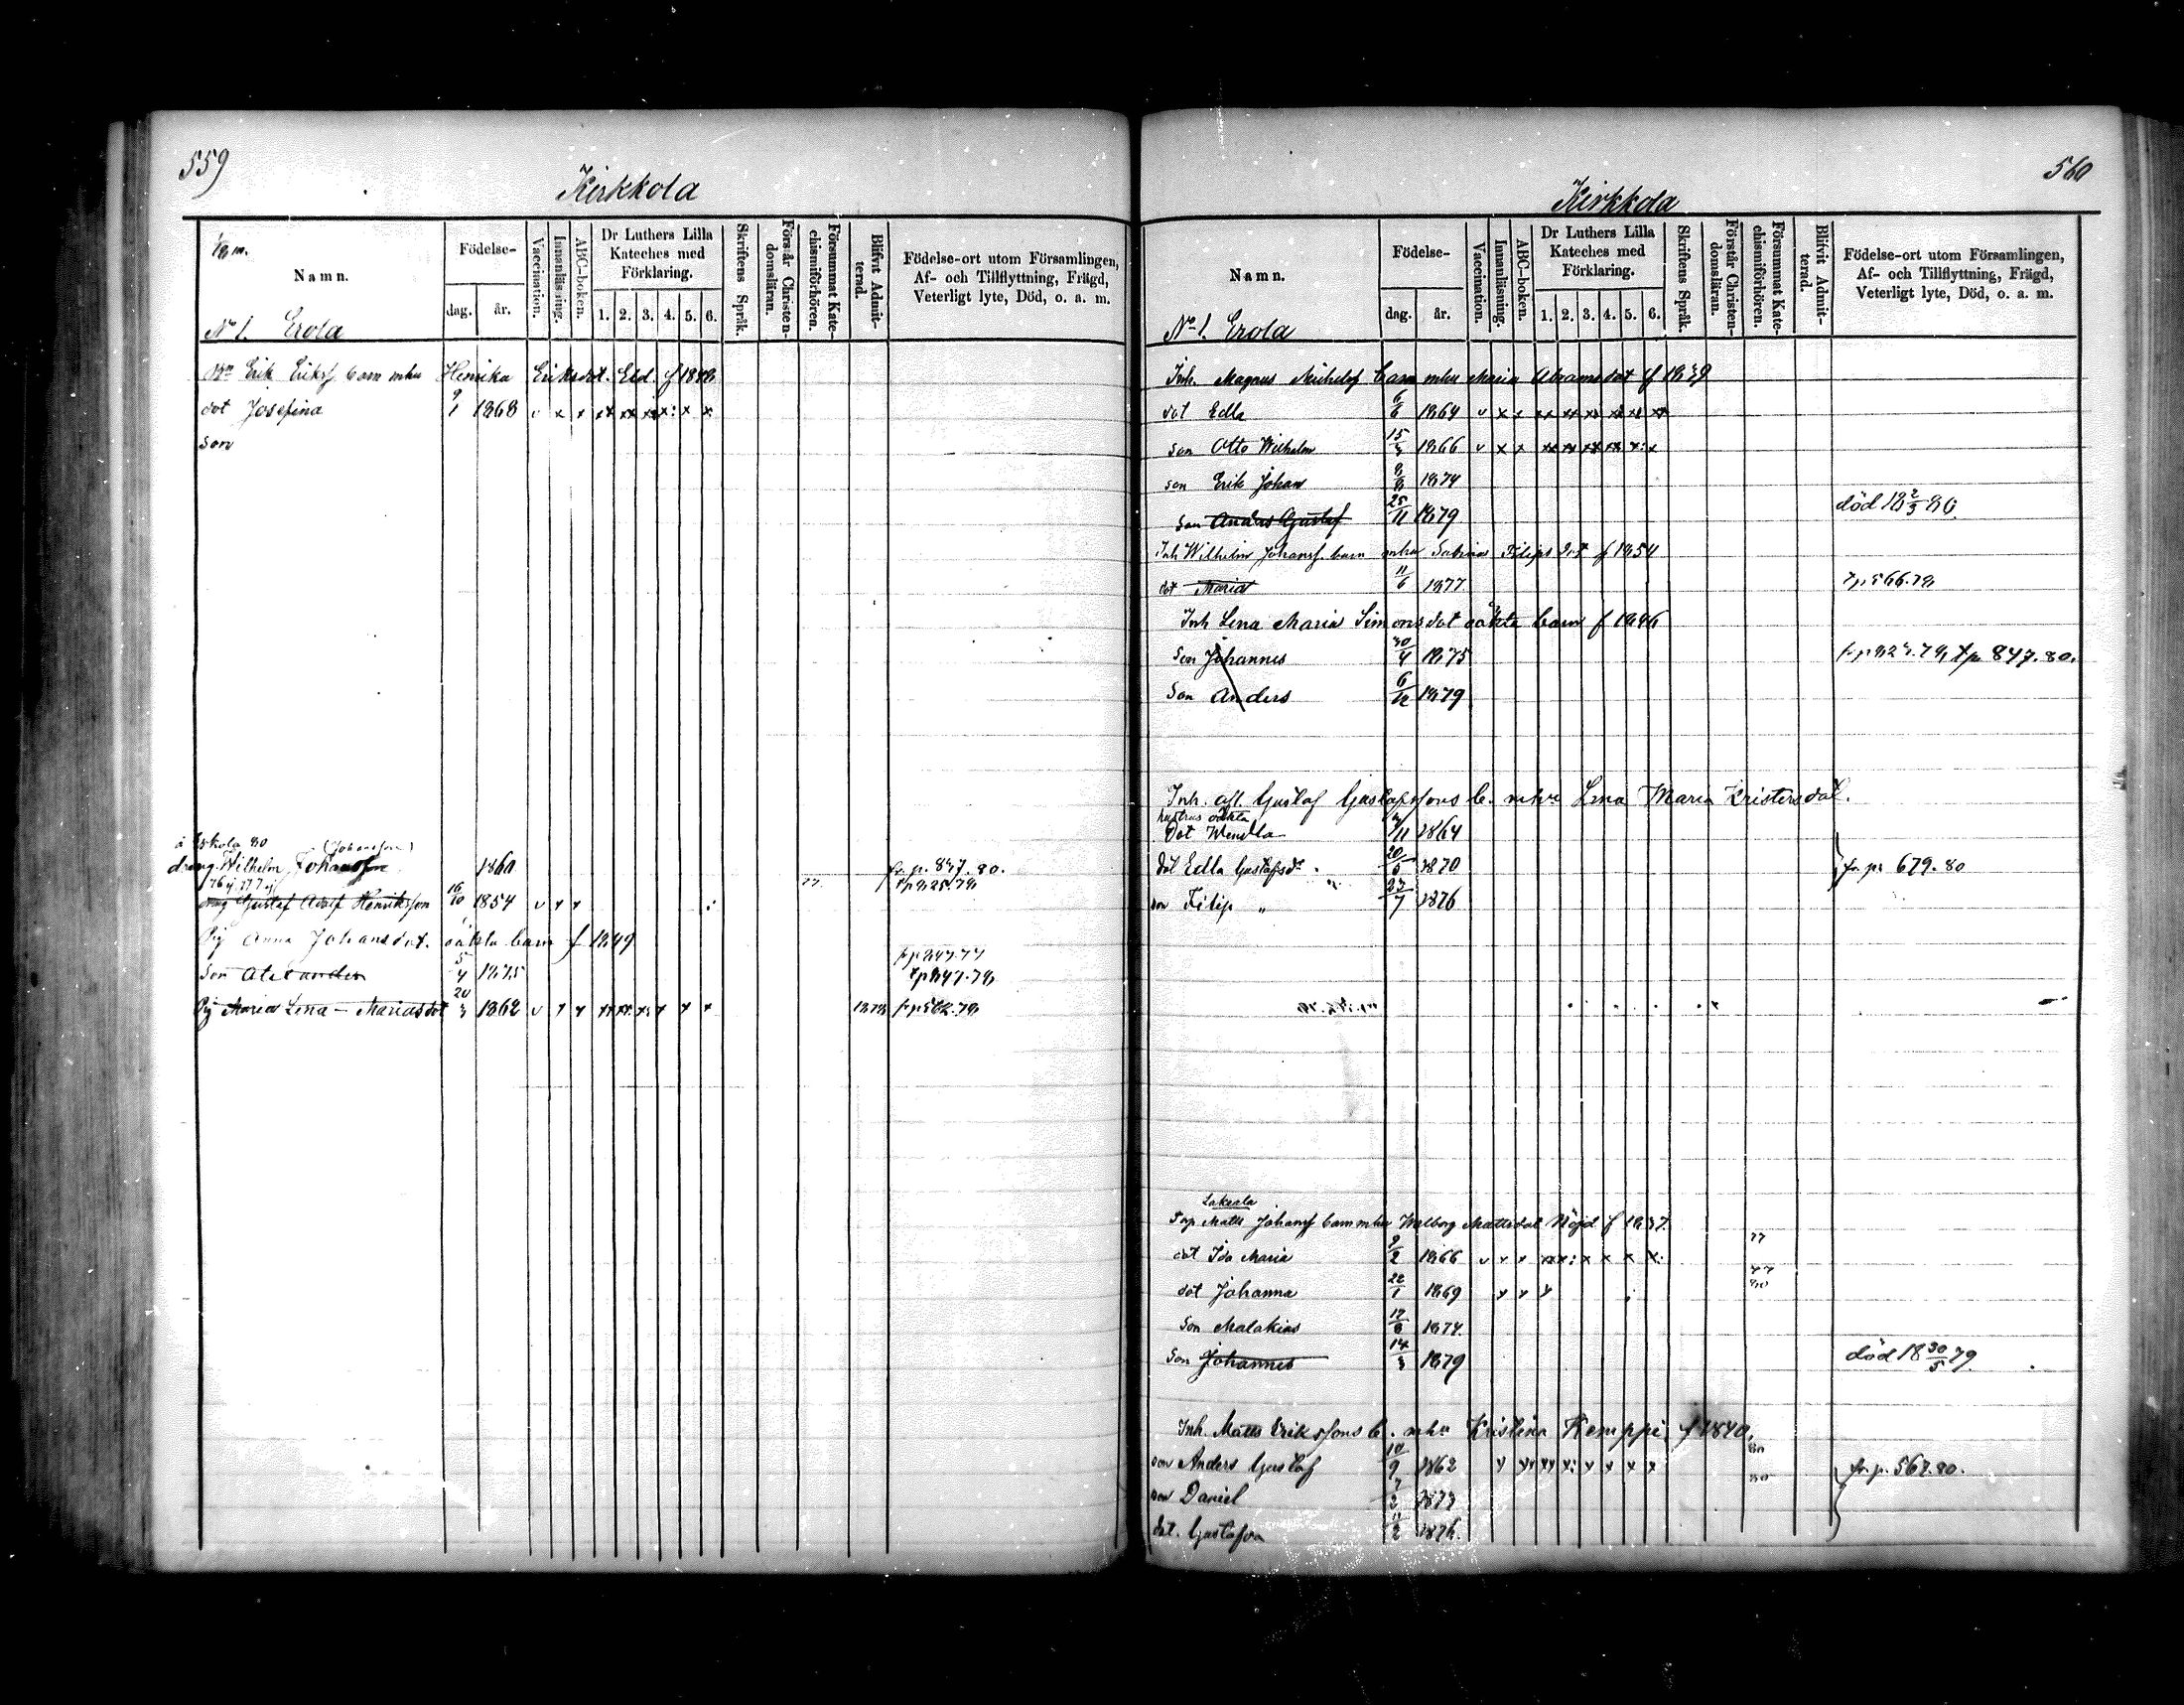 559
Kirkkola
1/8 m.
Namn.
Födelse-
dag.
år.
Vaccination.
Innanläsning.
ABC-boken.
Dr Luthers Lilla Kateches med Förklaring.
1. 2. 3. 4. 5. 6.
Skriftens Språk.
Förstår Christendomsläran.
Försummat Katechismiförhören.
Blifvit Admitterad.
Födelse-ort utom Församlingen, Af- och Tillflyttning, Frägd, Veterligt lyte, Död, o. a. m.
No 1. Erola
Erik Eriksf barn mhu Henrika Eriksdot. Eld. f
dot Josefina 1868 v x x xx xx x x
son
(Johansson)
dräng Wilhelm Johansson 1860 fr. p. 847. 80.
drng Gustaf Adolf Henriksson 16/10 1854 v x x
Pig Anna Johansdot. oäkta barn f 1849
son Alexander 5/4 1875
Pig Maria Lena Mariasdot 20/3 1862 v x x
560
Kirkkola
Namn.
Födelse-
dag.
år.
Vaccination.
Innanläsning.
ABC-boken.
Dr Luthers Lilla Kateches med Förklaring.
1. 2. 3. 4. 5. 6.
Skriftens Språk.
Förstår Christendomsläran.
Försummat Katechismiförhören.
Blifvit Admitterad.
Födelse-ort utom Församlingen, Af- och Tillflyttning, Frägd, Veterligt lyte, Död, o. a. m.
No 1. Erola
Inh. Magnus Michelsf barn mhu Maria Abramsdot f 1839
dot Edla 6/6 1864 v x x xx xx xx xx xx xx
son Otto Wilhelm 15/3 1866 v x x xx xx xx xx x: x
son Erik Johan 1874
son Anders Gustaf 25/11 1879 död 18 2/3 80.
Inh Wilhelm Johansf. barn mhu Sabina Filipsdot f 1854
dot Maria 11/6 1877
Inh Lena Maria Simonsdot oäkta barn f 1846
son Johannes 30/4 1875 tp 847. 80.
son Anders 6/12 1879
Inh. afl. Gustaf Gustafssons b. mhu Lena Maria Kristersdot.
hustrus oäkta
Dot Wendla 1864
dot Edla Gustafsdr 20/5 1870 fr. p. 679. 80
son Filip " 23/7 1876
Matts Johansf barn mhu Walborg Mattsdot Nöjd f 1837. 77
dot Ida Maria 9/2 1866
dot Johanna 22/1 1869 80
son Malakias 17/8 1874.
son Johannes 14/3 1879 död 18 30/5 79.
Inh. Matts Erikssons b. mhu Kristina Kemppi f 1840.
son Anders Gustaf 10/9 1862 80 fr. p. 567. 80.
son Daniel 1873 80
dot. Gustafva 1876.